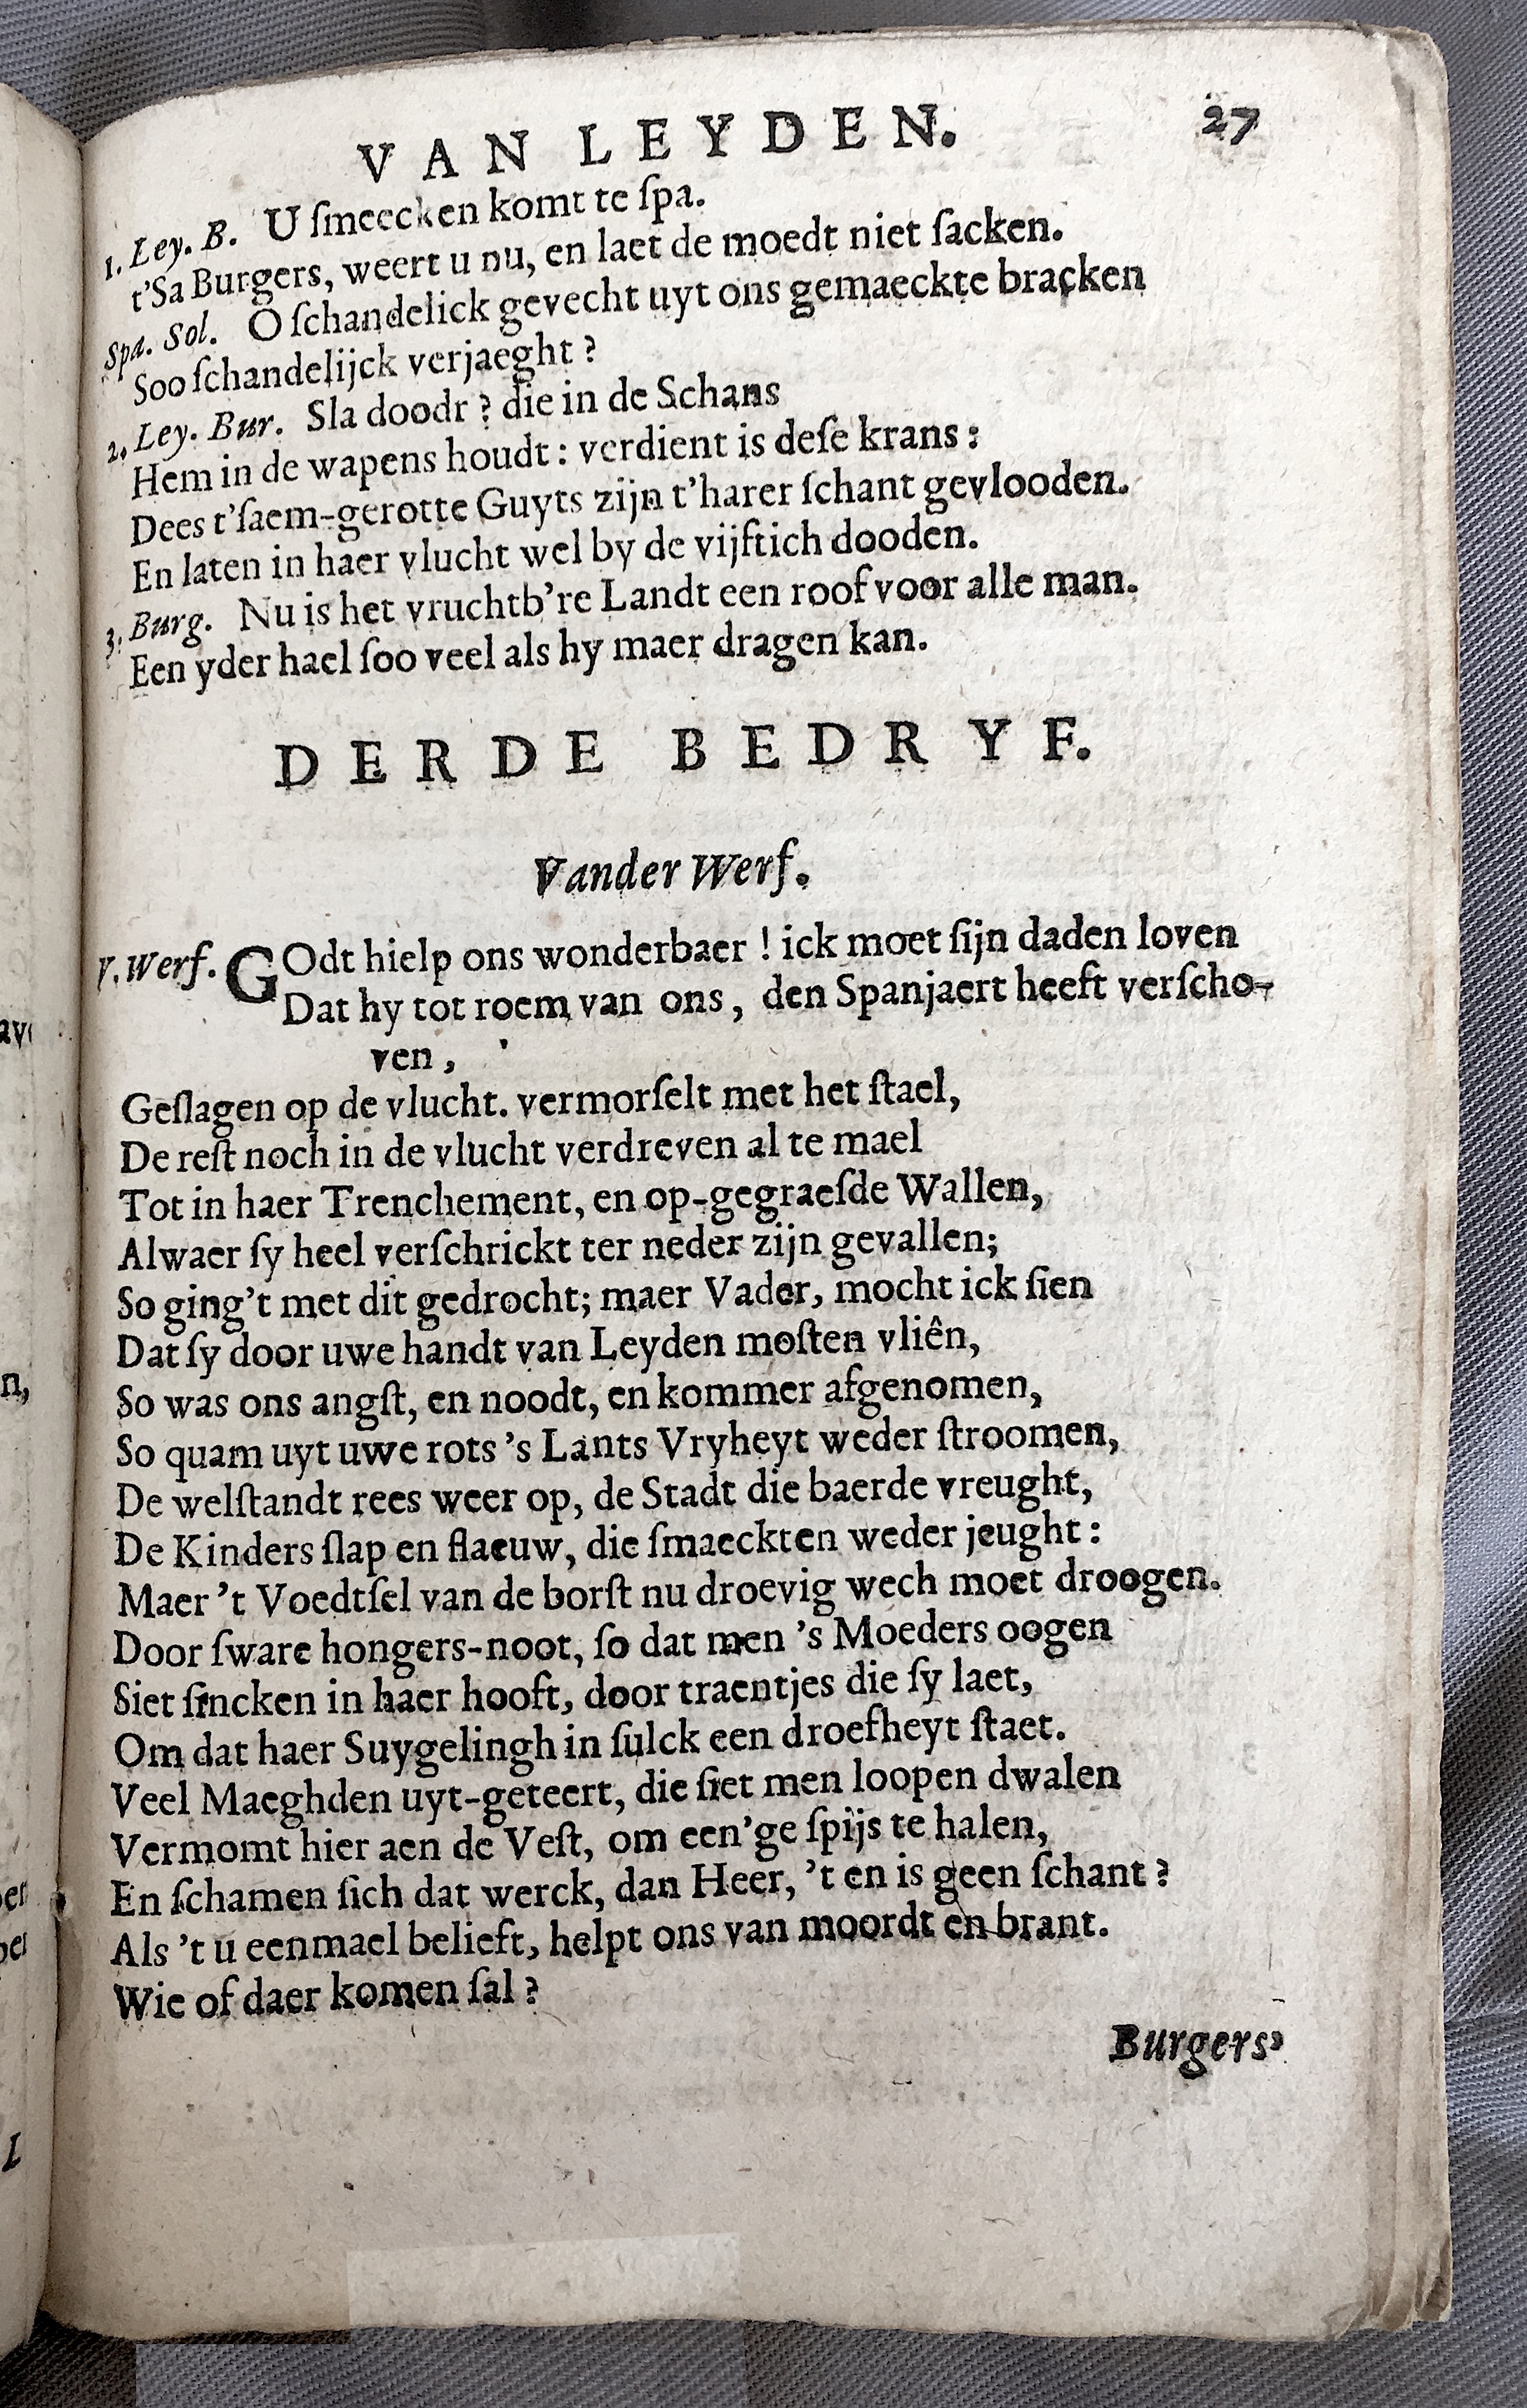 VAN LEYDEN. 27
1. Ley. B. U ſmeecken komt te ſpa.
t'Sa Burgers, weert u nu, en laet de moedt niet ſacken.
Spa. Sol. O ſchandelick gevecht uyt ons gemaeckte bracken
Soo ſchandelijck verjaeght ?
2. Ley. Bur. Sla doodr ? die in de Schans
Hem in de wapens houdt : verdient is deſe krans :
Dees t'ſaem-gerotte Guyts zijn t'harer ſchant gevlooden.
En laten in haer vlucht wel by de vijftich dooden.
3. Burg. Nu is het vruchtb're Landt een roof voor alle man.
Een yder hael ſoo veel als hy maer dragen kan.
DERDE BEDRYF.
Vander Werf.
V. Werf. GOdt hielp ons wonderbaer ! ick moet ſijn daden loven
Dat hy tot roem van ons, den Spanjaert heeft verſcho-
ven,
Geſlagen op de vlucht. vermorſelt met het ſtael,
De reſt noch in de vlucht verdreven al te mael
Tot in haer Trenchement, en op-gegraeſde Wallen,
Alwaer ſy heel verſchrickt ter neder zijn gevallen;
So ging't met dit gedrocht; maer Vader, mocht ick ſien
Dat ſy door uwe handt van Leyden moſten vliên,
So was ons angſt, en noodt, en kommer afgenomen,
So quam uyt uwe rots 's Lants Vryheyt weder ſtroomen,
De welſtandt rees weer op, de Stadt die baerde vreught,
De Kinders ſlap en flaeuw, die ſmaeckten weder jeught :
Maer 't Voedtſel van de borſt nu droevig wech moet droogen.
Door ſware hongers-noot, ſo dat men 's Moeders oogen
Siet ſincken in haer hooft, door traentjes die ſy laet,
Om dat haer Suygelingh in ſulck een droefheyt ſtaet.
Veel Maeghden uyt-geteert, die ſiet men loopen dwalen
Vermomt hier aen de Veſt, om een'ge ſpijs te halen,
En ſchamen ſich dat werck, dan Heer, 't en is geen ſchant ?
Als 't u eenmael belieft, helpt ons van moordt en brant.
Wie of daer komen ſal ?
Burgers